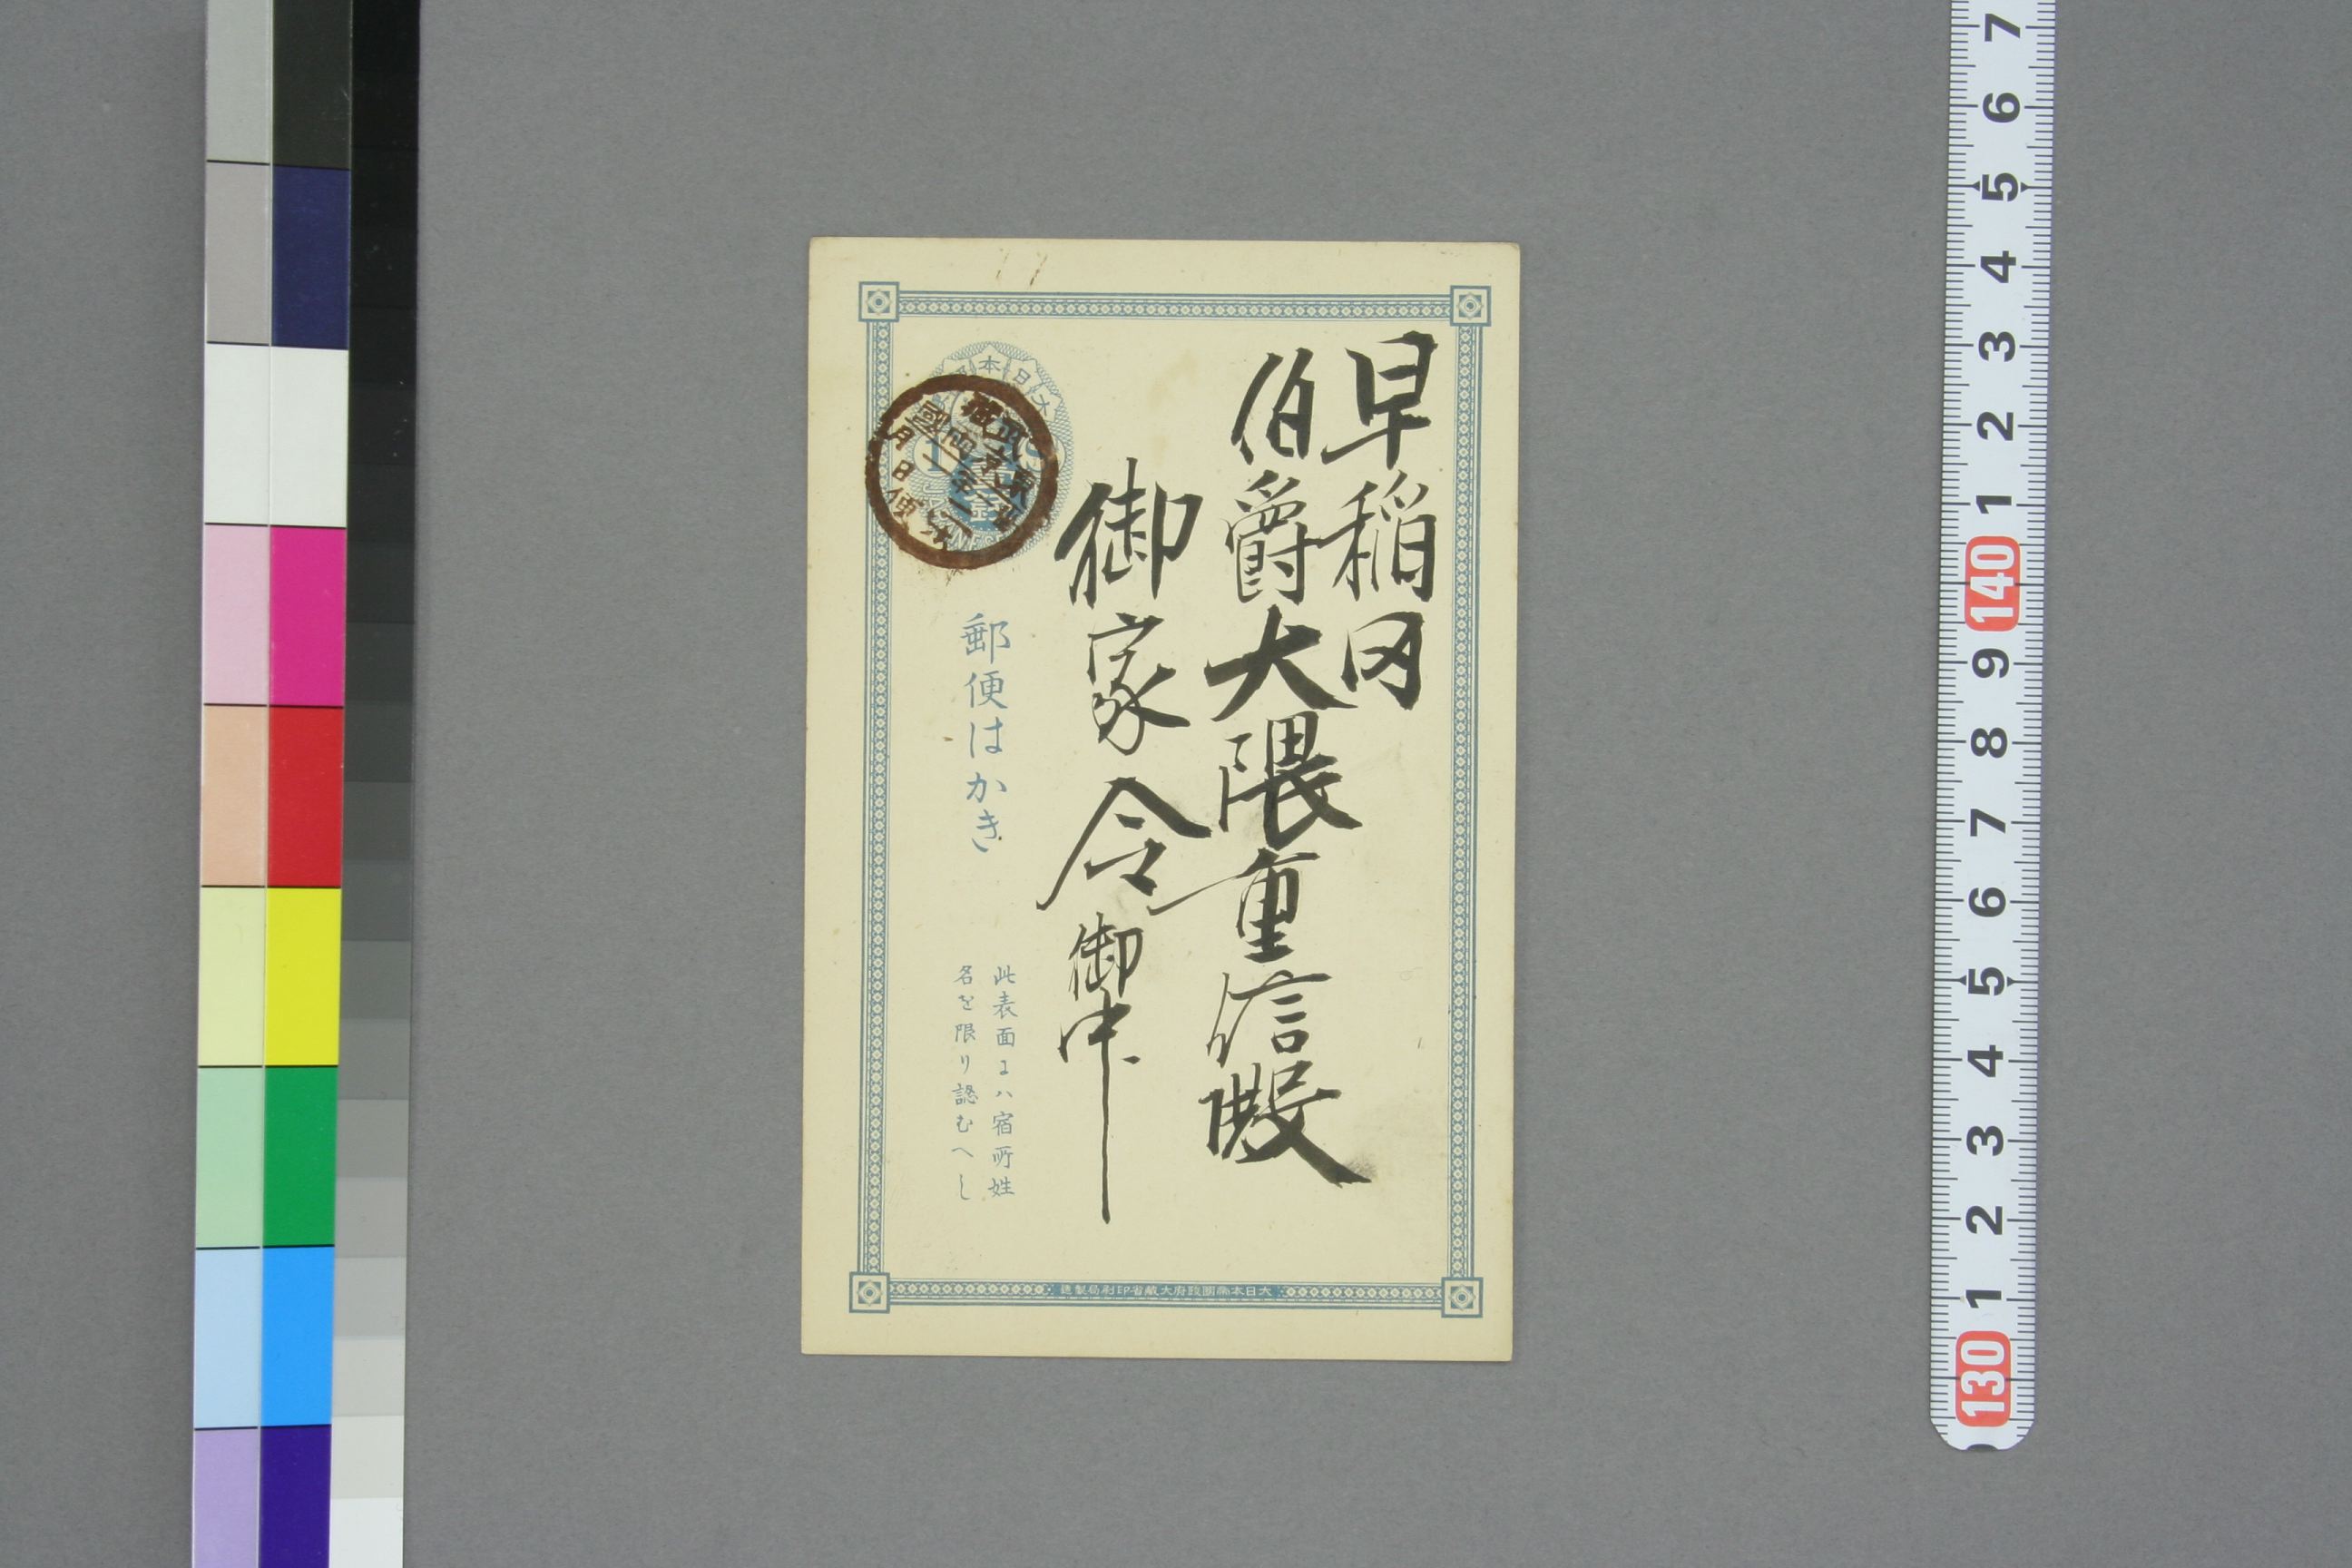 早稲田
伯爵大隈重信殿
御家令御中
大日本
武蔵
東京
國
月日
便
郵便はかき
此表面にハ宿所姓
名を限り認むへし
大日本帝國政府大蔵省印刷局製造
7
6
5
4
3
2
1
140
9
8
7
6
5
4
3
2
1
130